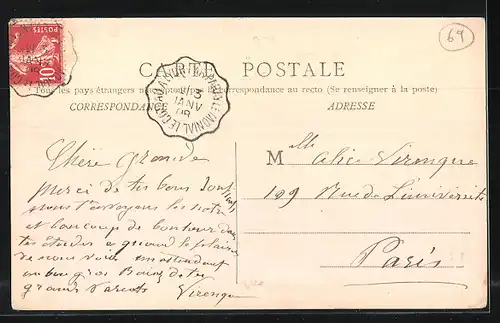 69
10
POSTES
CARTE POSTALE
Tous les pays étrangers n'acceptent pas la correspondance au recto (Se renseigner à la poste)
CORRESPONDANCE
ADRESSE
3
JANV
08
PARAY-LE-MONIAL
Chère grande
Merci de tes bons souhaits
nous t'envoyons les notres
et beaucoup de bonheur dans
tes études et quand le plaisir
de nous voir en attendant
un bon gros Baiser de tes
grands Parents Virenque
Mlle Alice Virenque
109 Rue de L'université
Paris